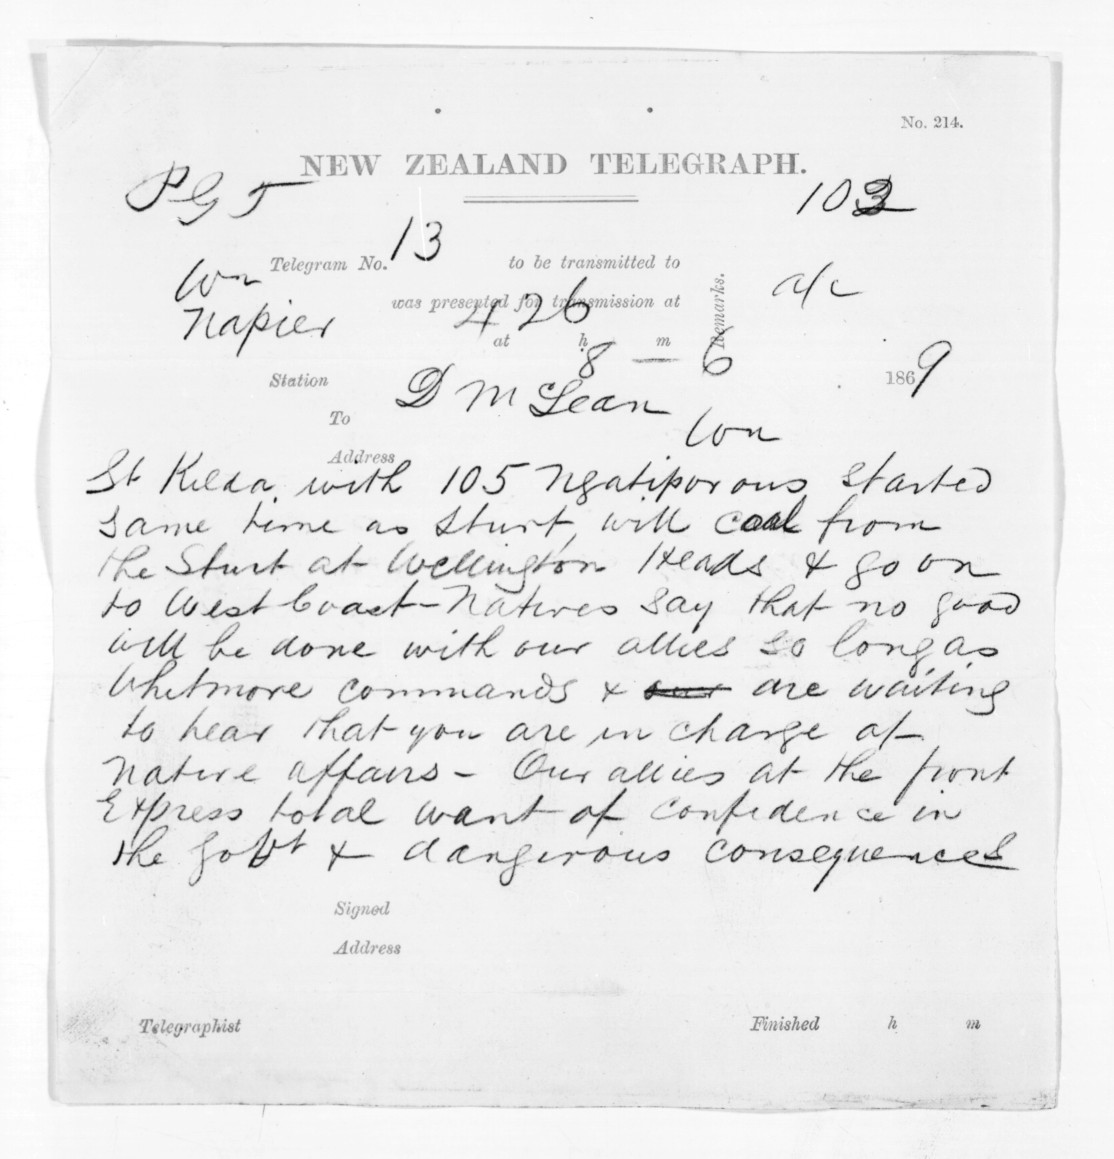 No. 214.
NEW ZEALAND TELEGRAPH.
P G T 103
Telegram No. 13 to be transmitted to
Wn
was presented for transmission at
Napier 4 26 Remarks. a/c
at h m
8 — 6
Station 1869
To D McLean
Wn
Address
St Kilda, with 105 Ngatiporous started
same time as Sturt, will coal from
the Sturt at Wellington Heads & go on
to West Coast - Natives say that no good
will be done with our allies so long as
Whitmore commands & our are waiting
to hear that you are in charge of
Native affairs - Our allies at the front
Express total want of confidence in
the Govt & dangerous consequences
Signed
Address
Telegraphist Finished h m